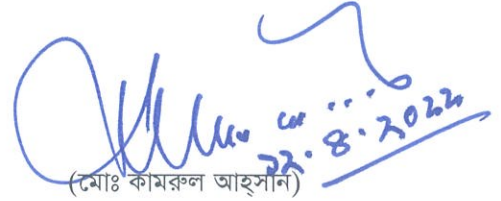 ১২.৪.২০২২
(মোঃ কামরুল আহ্সান)